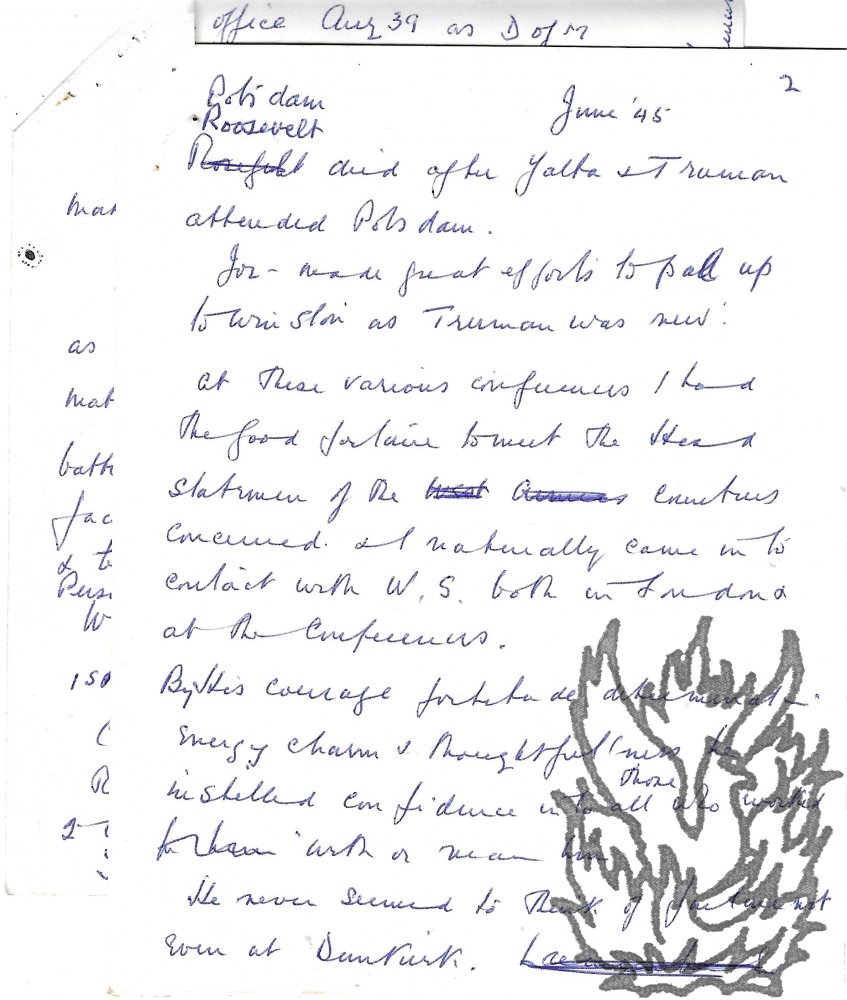 office Aug 39 as D of M
2
Potsdam June '45
Roosevelt
died after Yalta & Truman
attended Potsdam.
Joe - made great efforts to pal up
to Winston as Truman was new.
At these various conferences I had
the good fortune to meet the Head
statesmen of the countries
concerned. & I naturally came into
contact with W.S. both in London &
at the Conferences.
By His courage fortitude determinat-
Energy charm & thoughtfulness he
those
instilled confidence into all who worked
with or near him
He never seemed to think of failure not
Even at Dunkirk.
mat
as
mat
batt
fac
& t
Pers
W
150
(
R
2